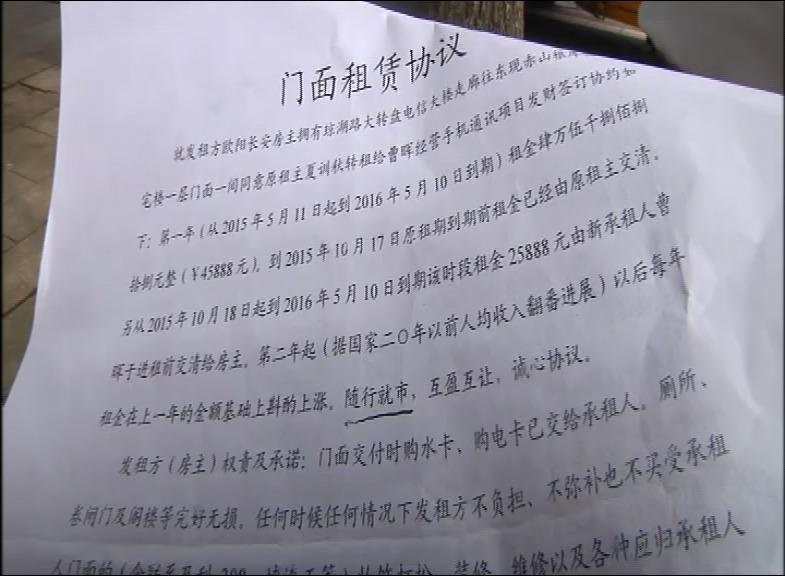 门面租赁协议
就发租方欧阳长安房主拥有琼湖路大转盘电信大楼走廊往东现赤山粮
宅楼一层门面一间同意原租主夏训秋转租给曹晖经营手机通讯项目发财签订协约如
下：第一年（从2015年5月11日起到2016年5月10日到期）租金肆万伍千捌佰捌
拾捌元整（￥45888元）。到2015年10月17日原租期到期前租金已经由原租主交清。
另从2015年10月18日起到2016年5月10日到期该时段租金25888元由新承租人曹
晖于进租前交清给房主。第二年起（据国家二〇年以前人均收入翻番进展）以后每年
租金在上一年的金额基础上斟酌上涨。随行就市，互盈互让，诚心协议。
发租方（房主）权责及承诺：门面交付时购水卡、购电卡已交给承租人。厕所、
卷闸门及阁楼等完好无损。任何时候任何情况下发租方不负担、不弥补也不买受承租
人门面的
装修、维修以及各种应归承租人